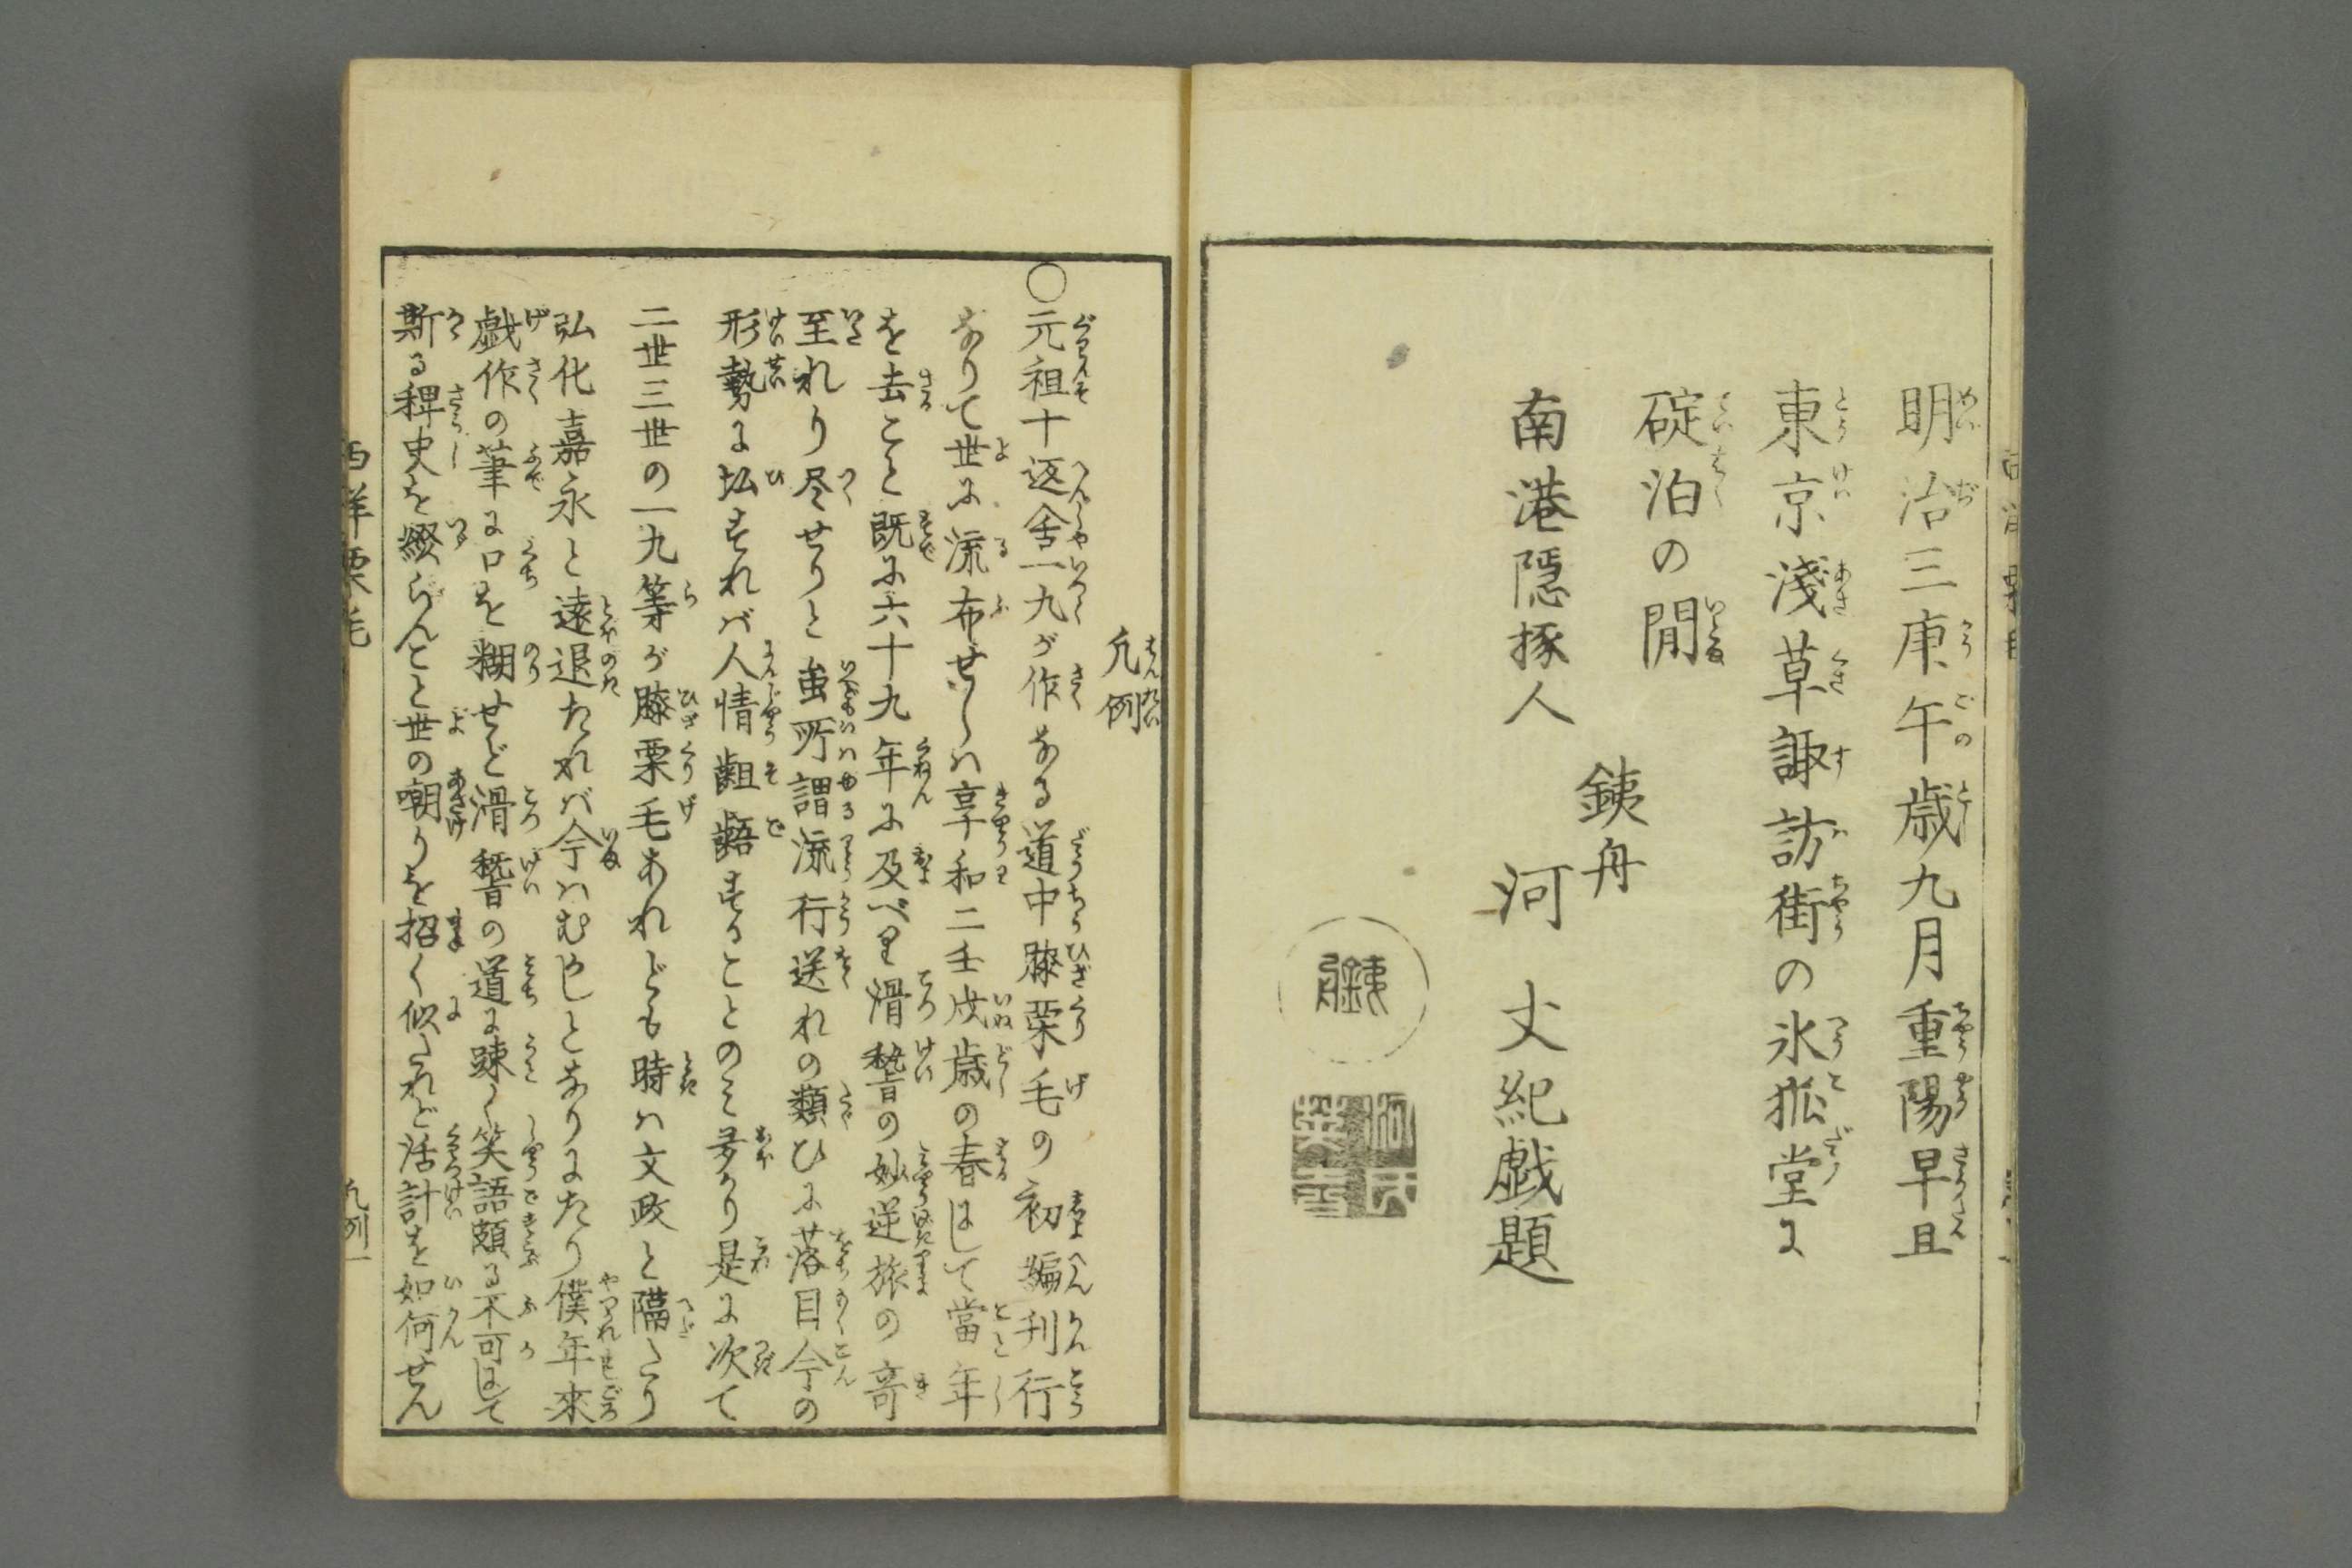 明治三庚午歳九月重陽早旦
東京淺草諏訪街の氷狐堂に
碇泊の間
銕舟
南港隠豚人
河丈紀戯題
凡例
○元祖十返舎一九が作なる道中膝栗毛の初編刊行
なりて世に流布せしは享和二壬戌歳の春にして當年
を去こと既に六十九年に及べり滑稽の妙逆旅の奇
至れり尽せりと虽所謂流行送れの類ひに落目今の
形勢に拟すれバ人情齟齬することのミ多かり是に次て
二世三世の一九等が膝栗毛あれども時は文政と隔たり
弘化嘉永と遠退たれバ今はむかしとなりにたり僕年來
戯作の筆に口を糊せど滑稽の道に踈く笑語頗る不可にして
斯る稗史を綴らんこと世の嘲りを招く似たれど活計を如何せん
西洋栗毛
凡例一